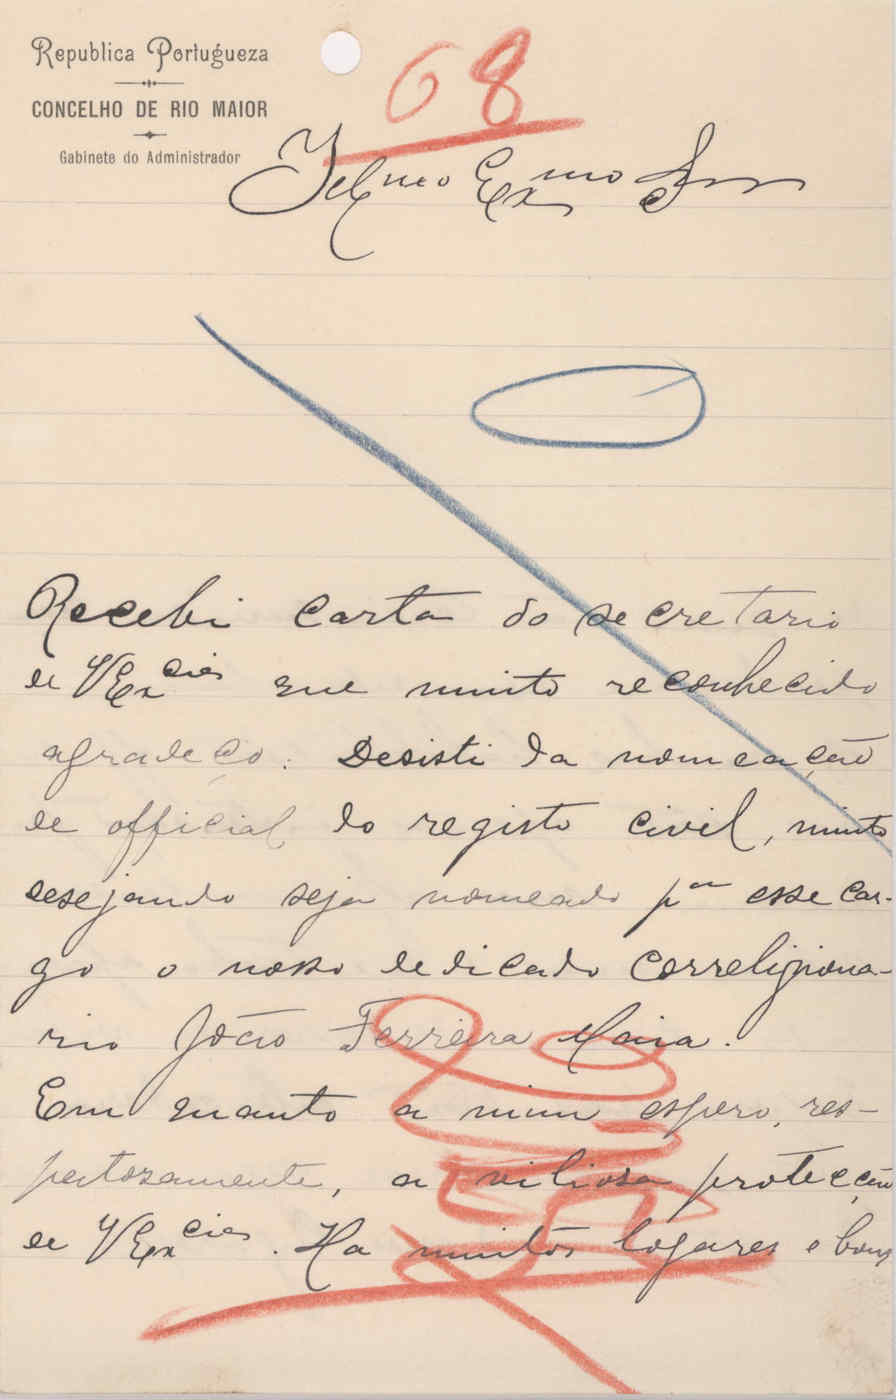 Republica Portugueza
CONCELHO DE RIO MAIOR
Gabinete do Administrador
68
Illmo Exmo Snr
Recebi carta do secretario
de VExcias que muito reconhecido
agradeço. Desisti da nomeação
de official do registo civil, muito
desejando seja nomeado pa esse car-
go o nosso dedicado correligiona-
rio João Ferreira Maia.
Em quanto a mim espero, res-
peitosamente, a valiosa protecção
de VExcias. Ha muitos logares e bons